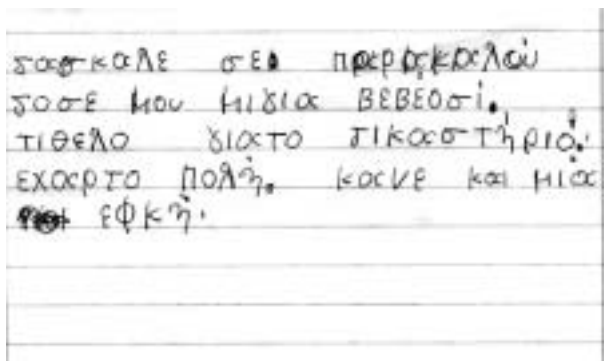 τασκαλε σε παρακαλού
τοσε μου μιγια βεβεοσί.
τιθελο γιατο τικαστήριό.
εχαρτο πολή. κανε και μιά
εφκή.